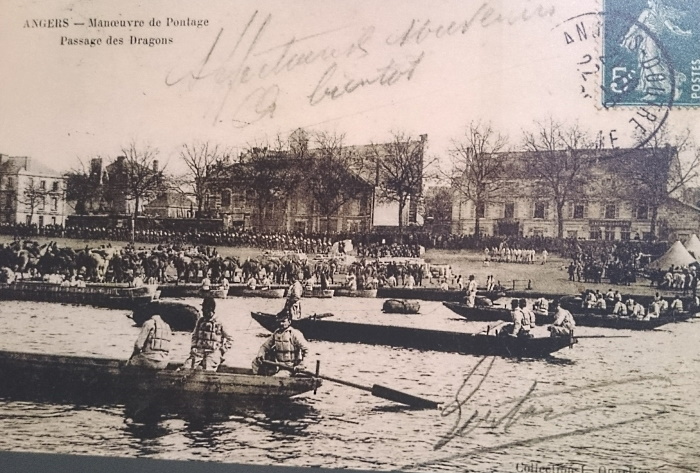 ANGERS — Manœuvre de Pontage
Passage des Dragons
Affectueux Souvenirs
A bientôt
ANGERS
POSTES
5c
Gustave
Collections